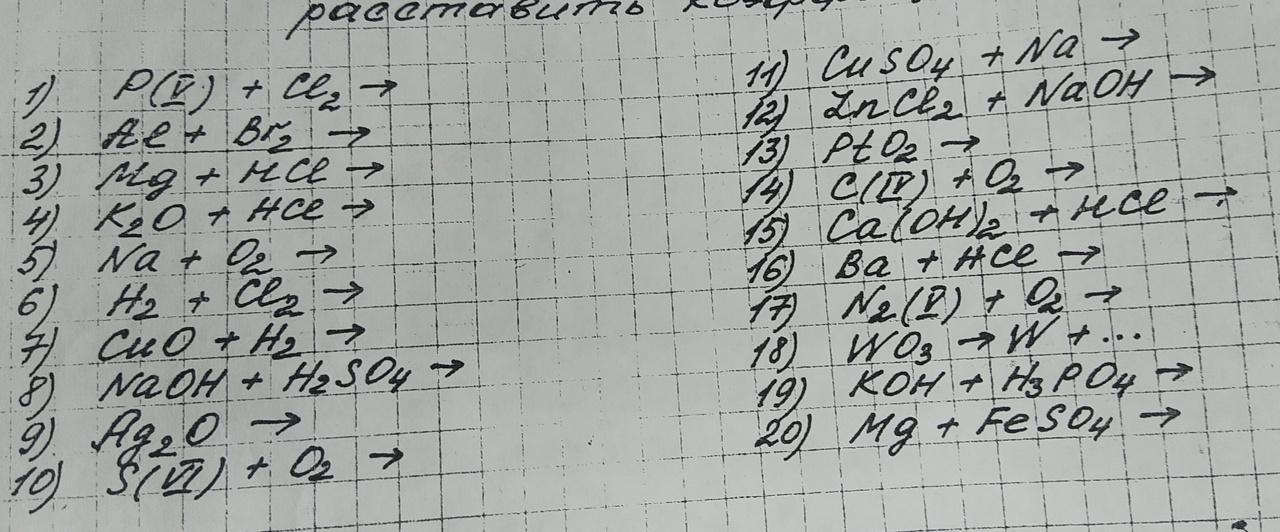 расставить
1) P(V) + Cl₂ →
2) Al + Br₂ →
3) Mg + HCl →
4) K₂O + HCl →
5) Na + O₂ →
6) H₂ + Cl₂ →
7) CuO + H₂ →
8) NaOH + H₂SO₄ →
9) Ag₂O →
10) S(VI) + O₂ →
11) CuSO₄ + Na →
12) ZnCl₂ + NaOH →
13) PtO₂ →
14) C(IV) + O₂ →
15) Ca(OH)₂ + HCl →
16) Ba + HCl →
17) N₂(V) + O₂ →
18) WO₃ → W + ...
19) KOH + H₃PO₄ →
20) Mg + FeSO₄ →